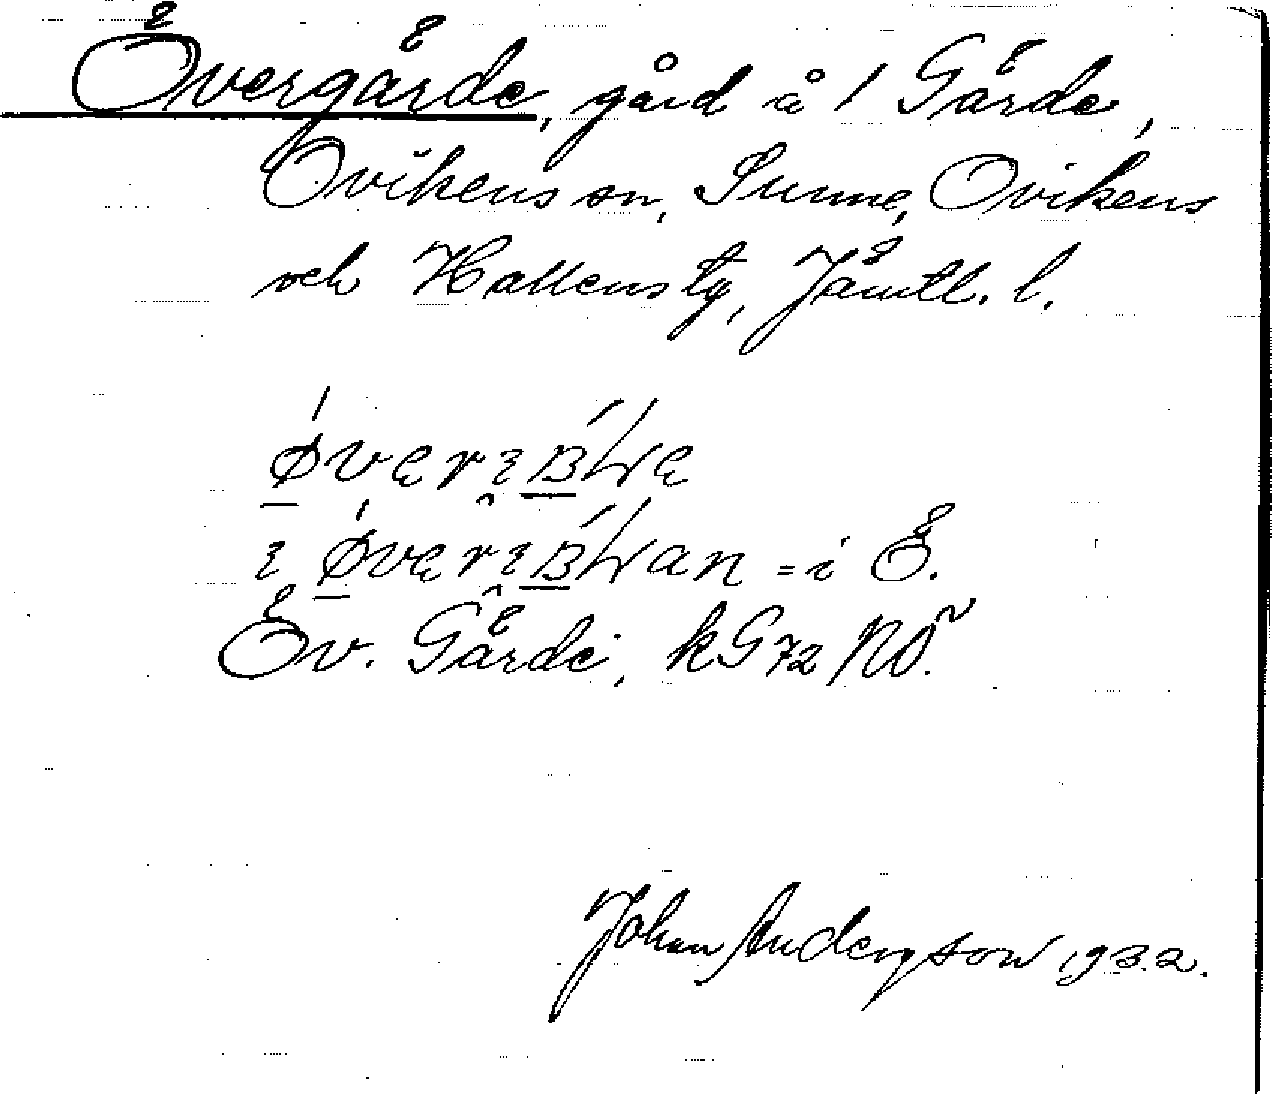 Övergärde, gård å 1 Gärde,
Ovikens sn, Sunne, Ovikens
och Hallens tg, Jämtl. l.
= i Ö.
Öv. Gärde, kG72 NÖ.
Johan Anderson 1932.